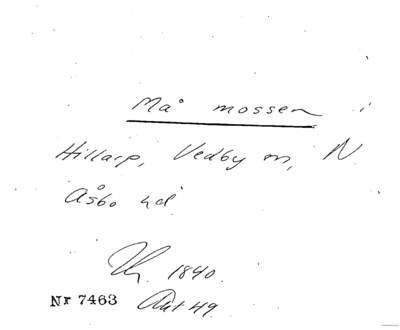 Må mossen i
Hillarp, Vedby sn, N.
Åsbo hd
1840.
Nr 7463 Akt 49